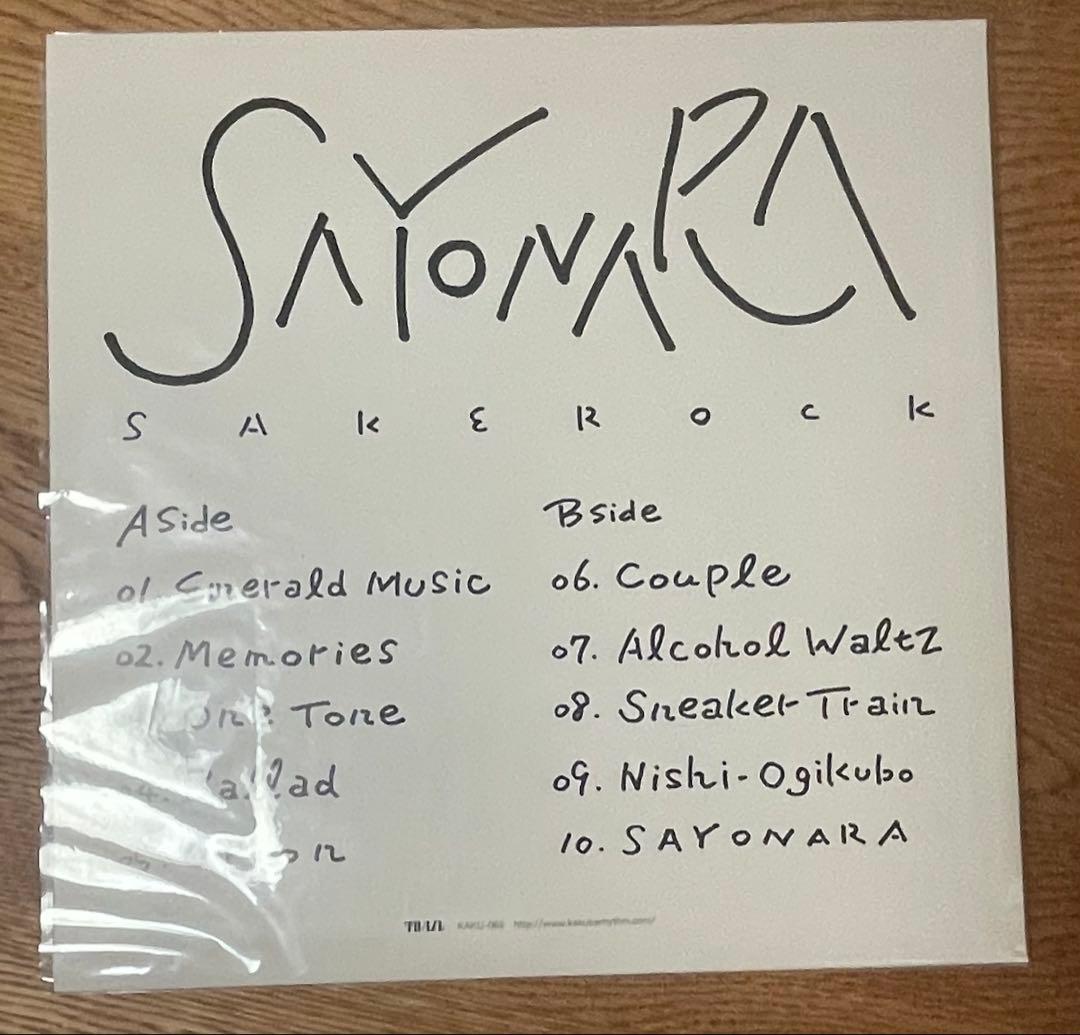 SAYONARA
SAKEROCK
A Side
01. Emerald Music
02. Memories
Tone
10. SAYONARA
B side
06. Couple
07. Alcohol Waltz
08. Sneaker Train
09. Nishi-Ogikubo
KAKU-
http://www.kakubarhythm.com/